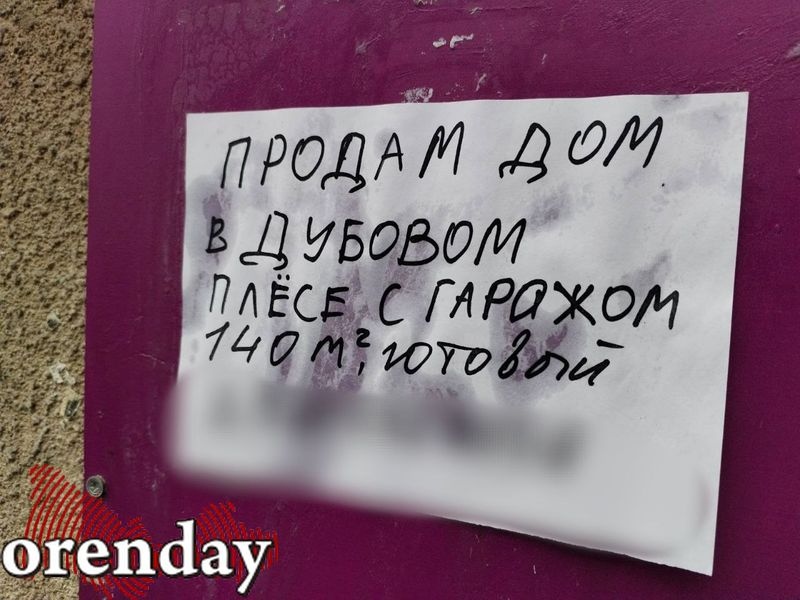 ПРОДАМ ДОМ
В ДУБОВОМ
ПЛЁСЕ С ГАРАЖОМ
140 м², готовый
orenday